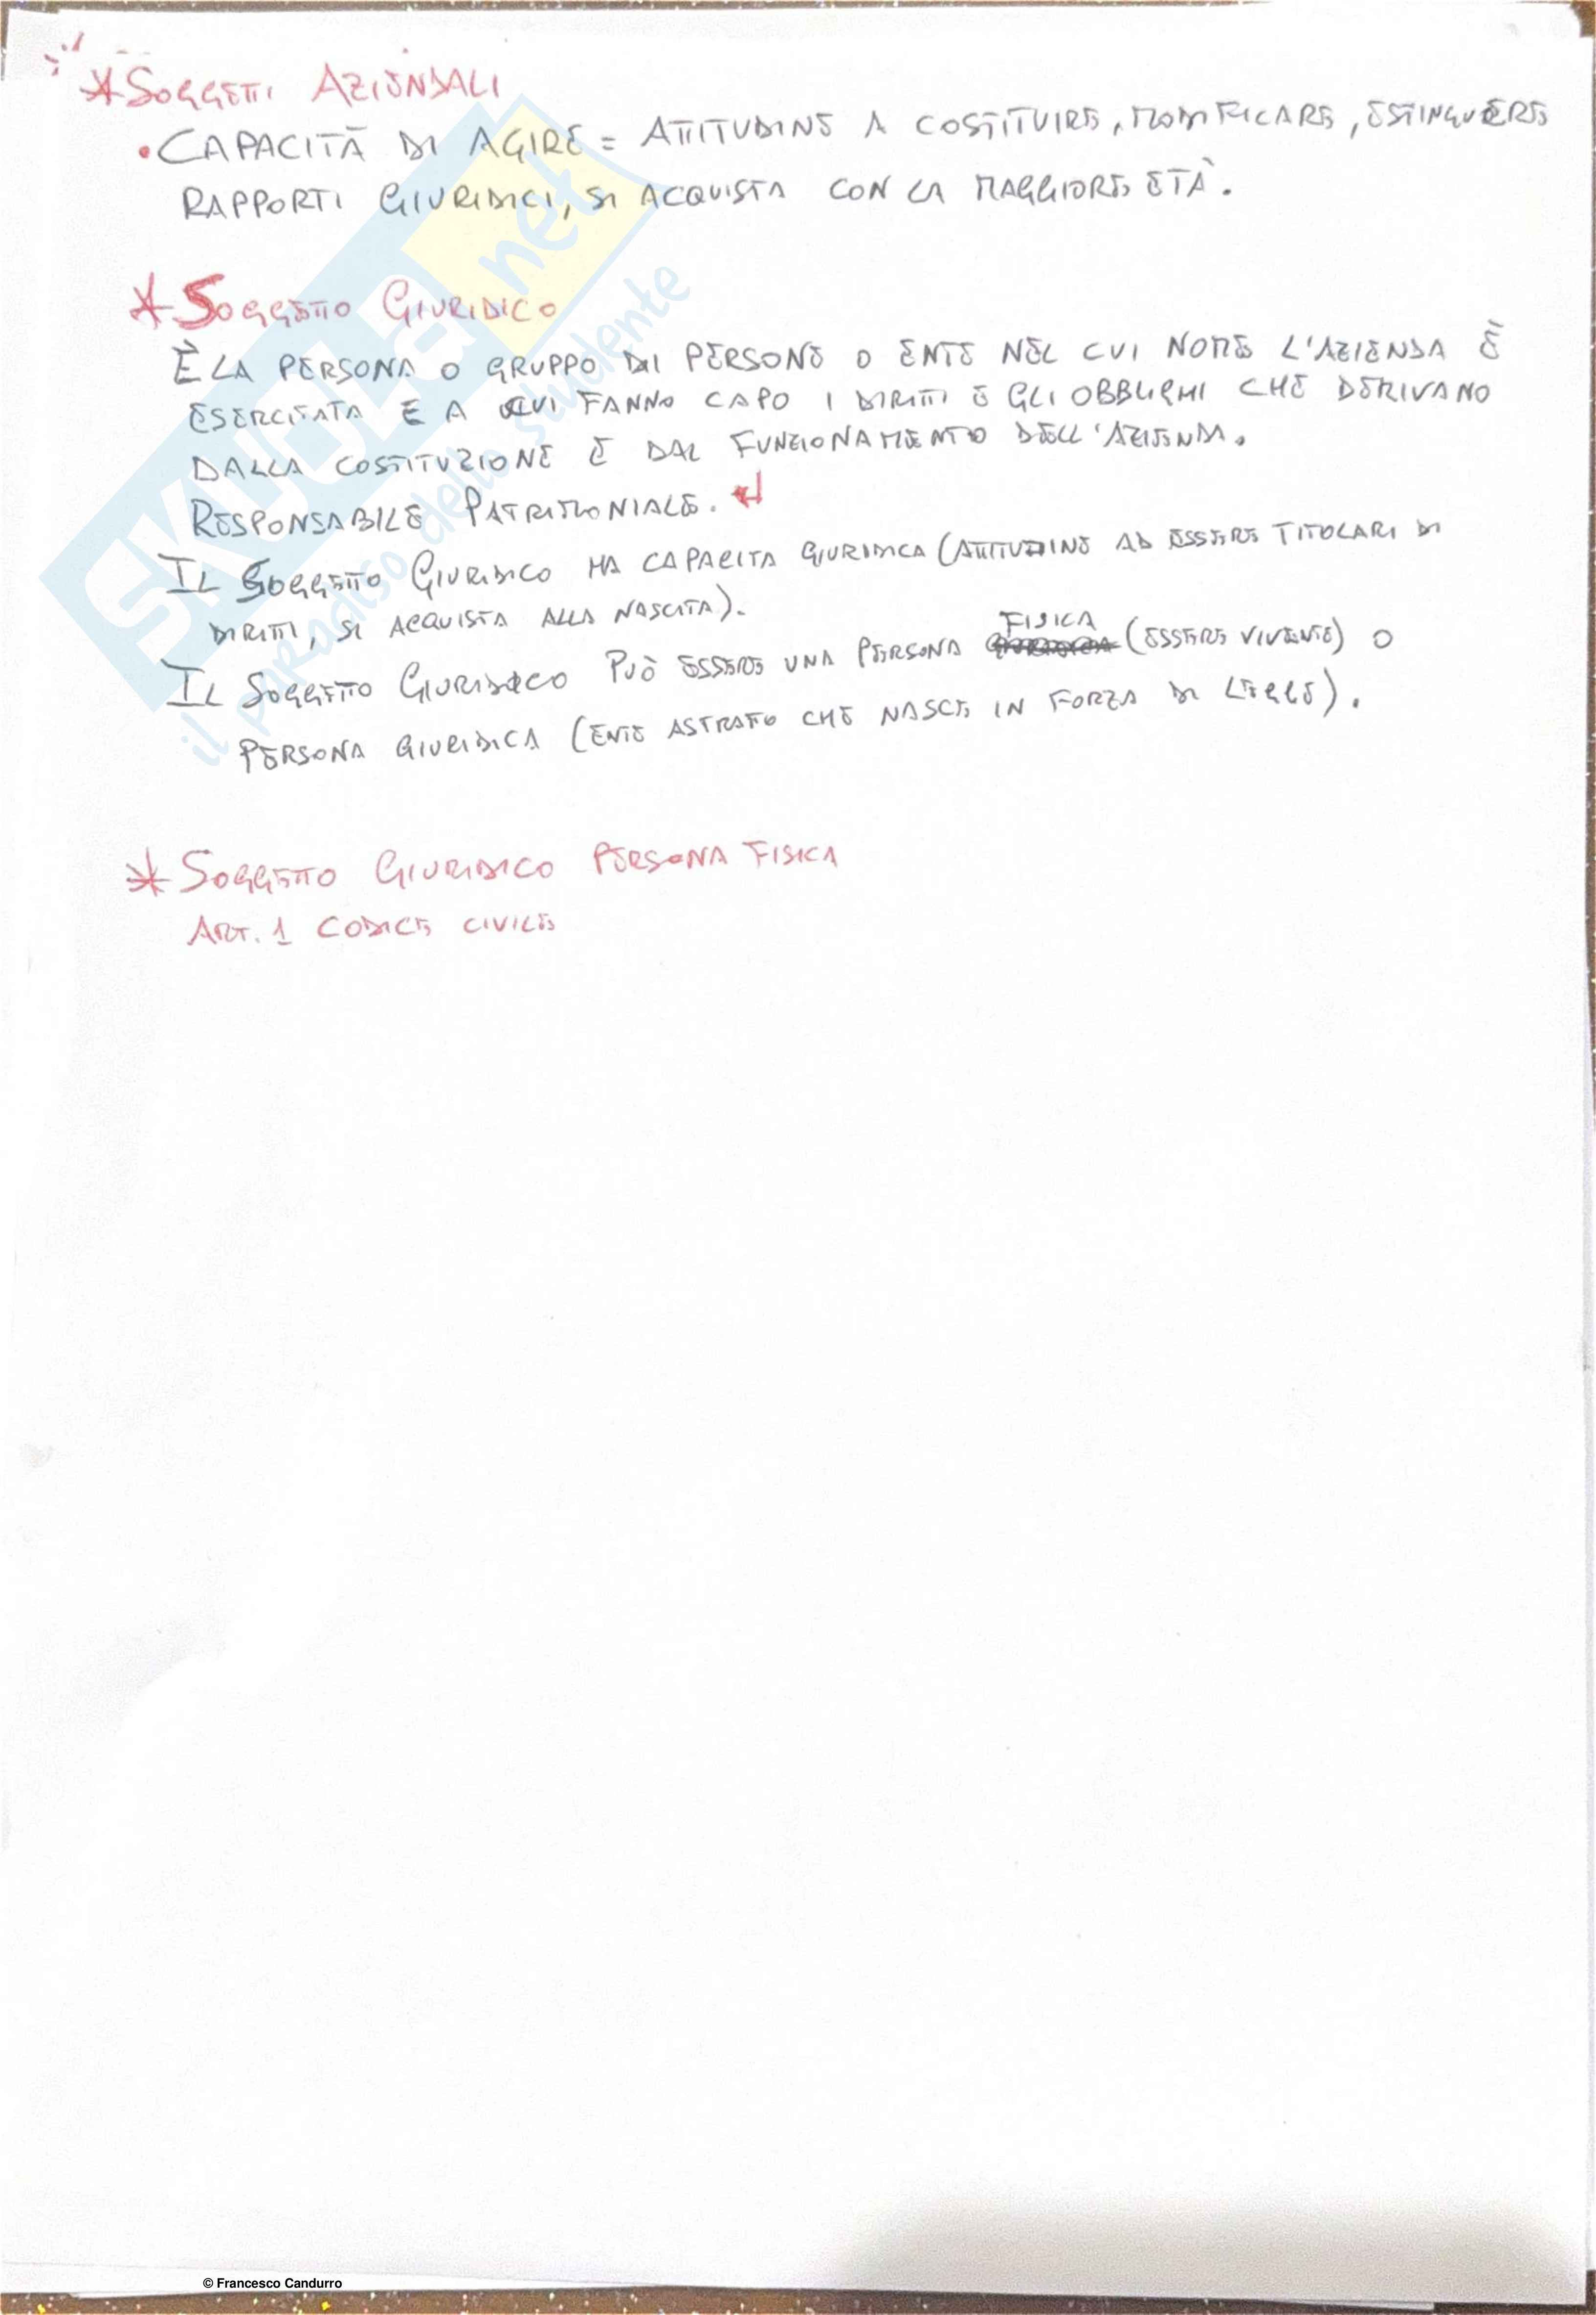 * SOGGETTI AZIENDALI
• CAPACITÀ DI AGIRE = ATTITUDINE A COSTITUIRE, MODIFICARE, ESTINGUERE
RAPPORTI GIURIDICI, SI ACQUISTA CON LA MAGGIORE ETÀ.
* SOGGETTO GIURIDICO
È LA PERSONA O GRUPPO DI PERSONE O ENTE NEL CUI NOME L'AZIENDA È
ESERCITATA E A CUI FANNO CAPO I DIRITTI E GLI OBBLIGHI CHE DERIVANO
DALLA COSTITUZIONE E DAL FUNZIONAMENTO DELL'AZIENDA.
RESPONSABILE PATRIMONIALE.
IL SOGGETTO GIURIDICO HA CAPACITA GIURIDICA (ATTITUDINE AD ESSERE TITOLARI DI
DIRITTI, SI ACQUISTA ALLA NASCITA).
IL SOGGETTO GIURIDICO PUÒ ESSERE UNA PERSONA FISICA (ESSERE VIVENTE) O
PERSONA GIURIDICA (ENTE ASTRATTO CHE NASCE IN FORZA DI LEGGE).
* SOGGETTO GIURIDICO PERSONA FISICA
ART. 1 CODICE CIVILE
SKUOLA.net
il paradiso dello studente
© Francesco Candurro